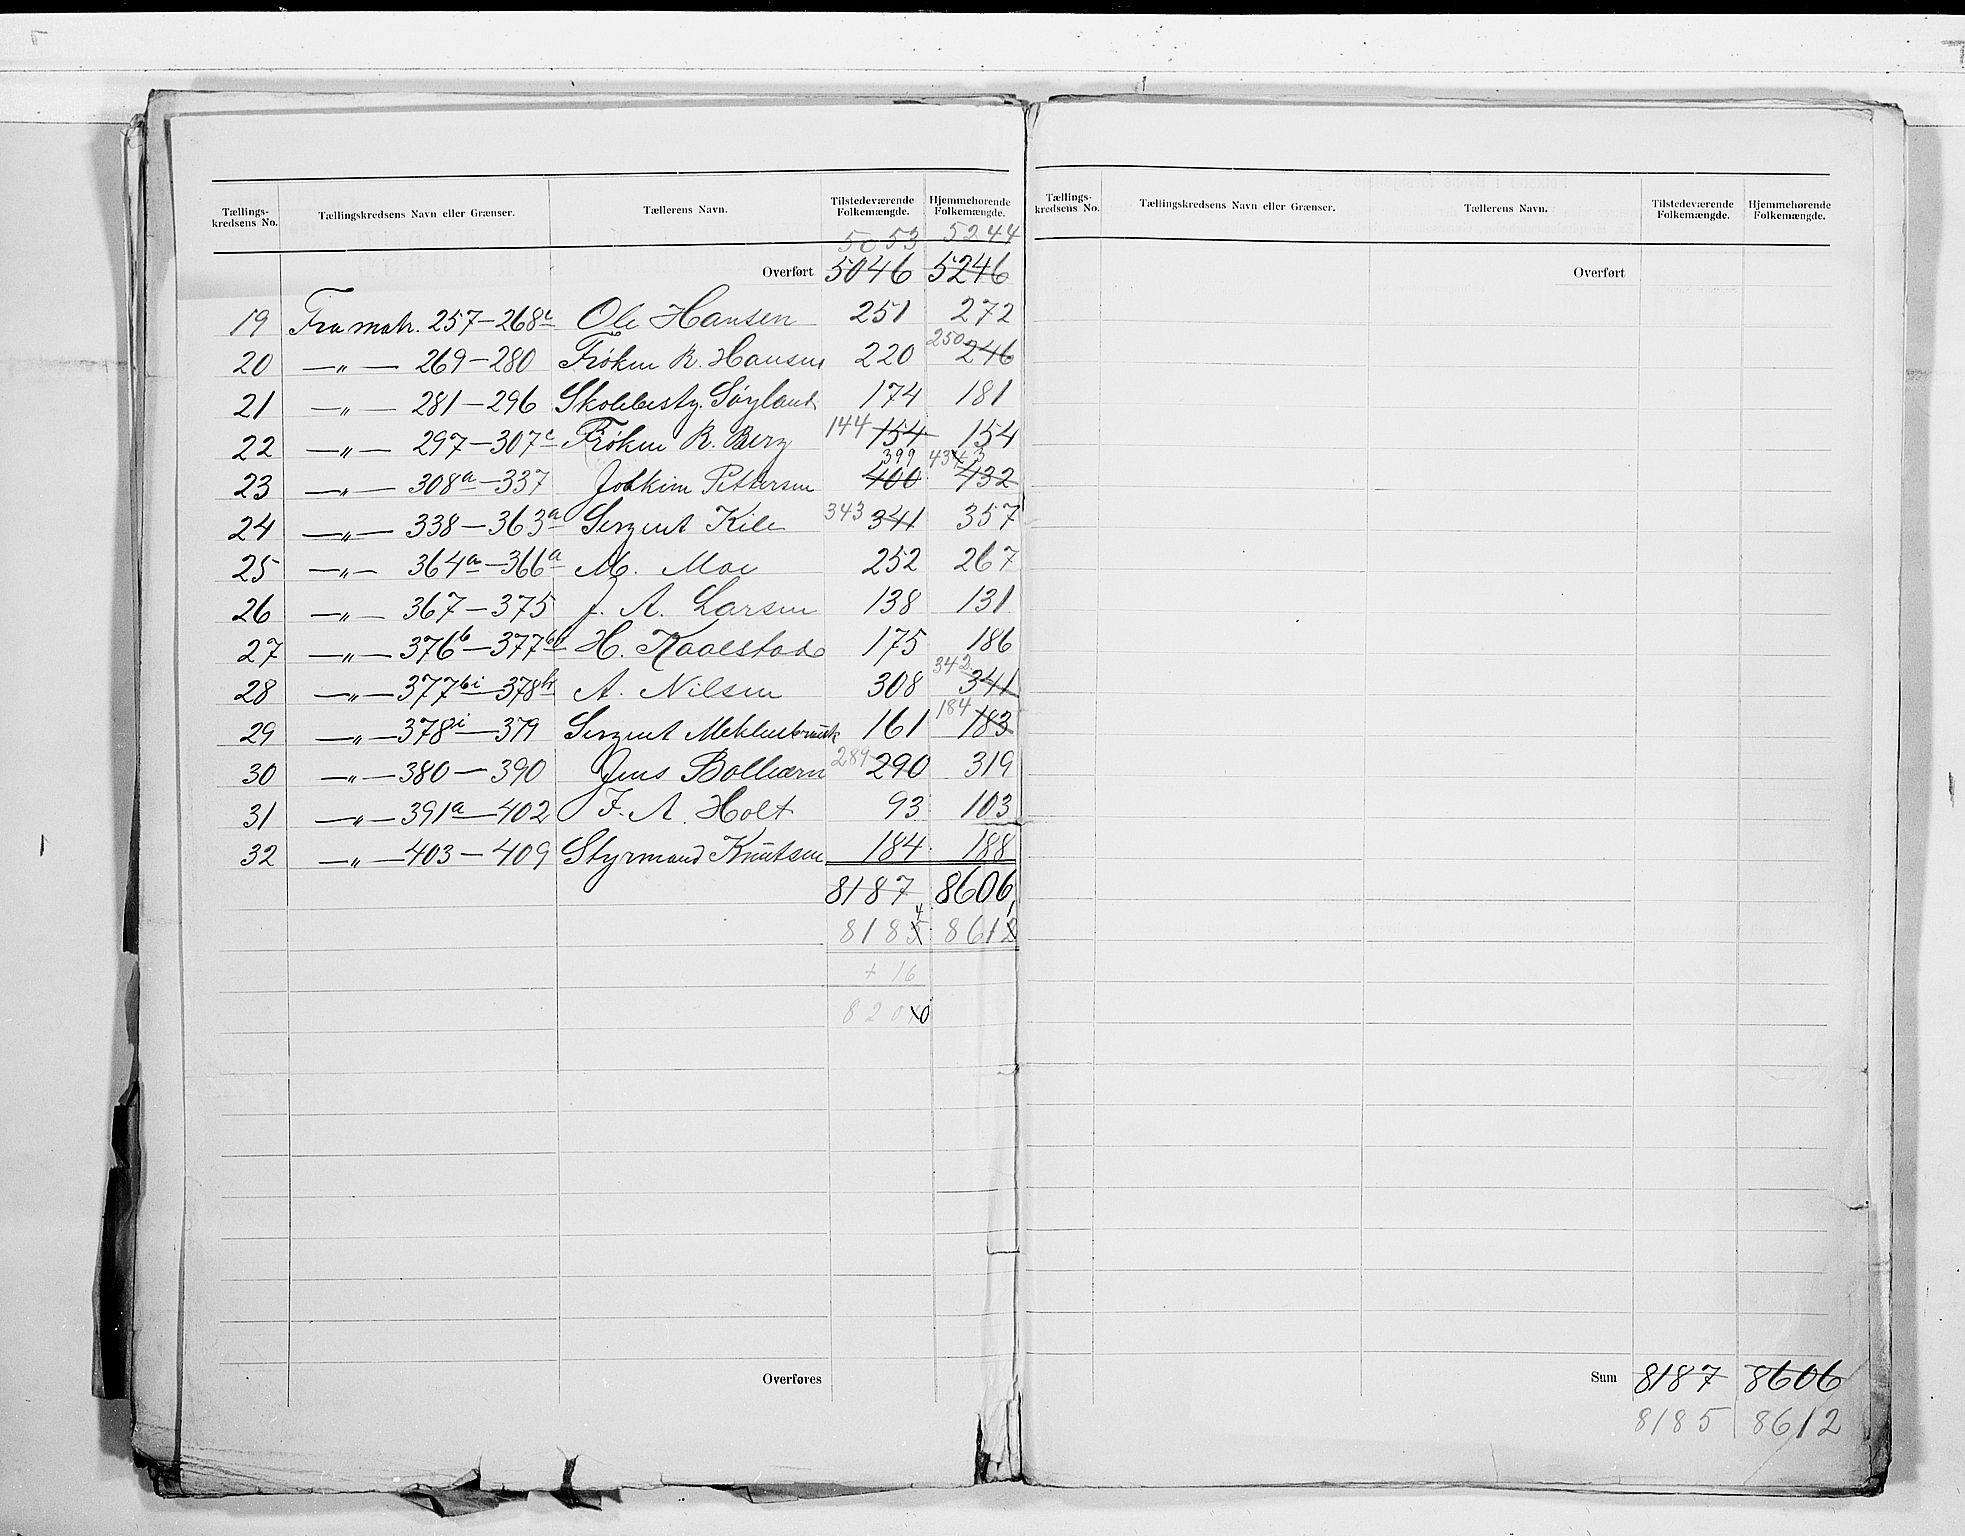 Tællings-kredsens No. Tællingskredsens Navn eller Grænser. Tællerens Navn. Tilstedeværende Folkemængde. Hjemmehørende Folkemængde.
5053 5244
Overført 5046 5246
19 Fra matr. 257-268c Ole Hansen 251 272
20 —„— 269-280 Frøken R. Hansen 220 250 246
21 —„— 281-296 Skolebesty. Søyland 174 181
22 —„— 297-307c Frøken R. Berg 144 154 154
23 —„— 308a-337 Joakim Pettersen 399 400 433 432
24 —„— 338-363a Sergent Kile 343 341 357
25 —„— 364a-366a M. Moe 252 267
26 —„— 367-375 J. A. Larsen 138 131
27 —„— 376b-377 H. Kaalstad 175 186
28 —„— 377bi-378h A. Nilsen 308 342 341
29 —„— 378i-379 Sergent 161 184 183
30 —„— 380-390 Jens Bolleærn 289 290 319
31 —„— 391a-402 F. A. Holt 93 103
32 —„— 403-409 Styrmand Knutsen 184 188
8187 8606
4
8185 8612
+ 16
8200
Overføres
Tællings-kredsens No. Tællingskredsens Navn eller Grænser. Tællerens Navn. Tilstedeværende Folkemængde. Hjemmehørende Folkemængde.
Overført
Sum 8187 8606
8185 8612